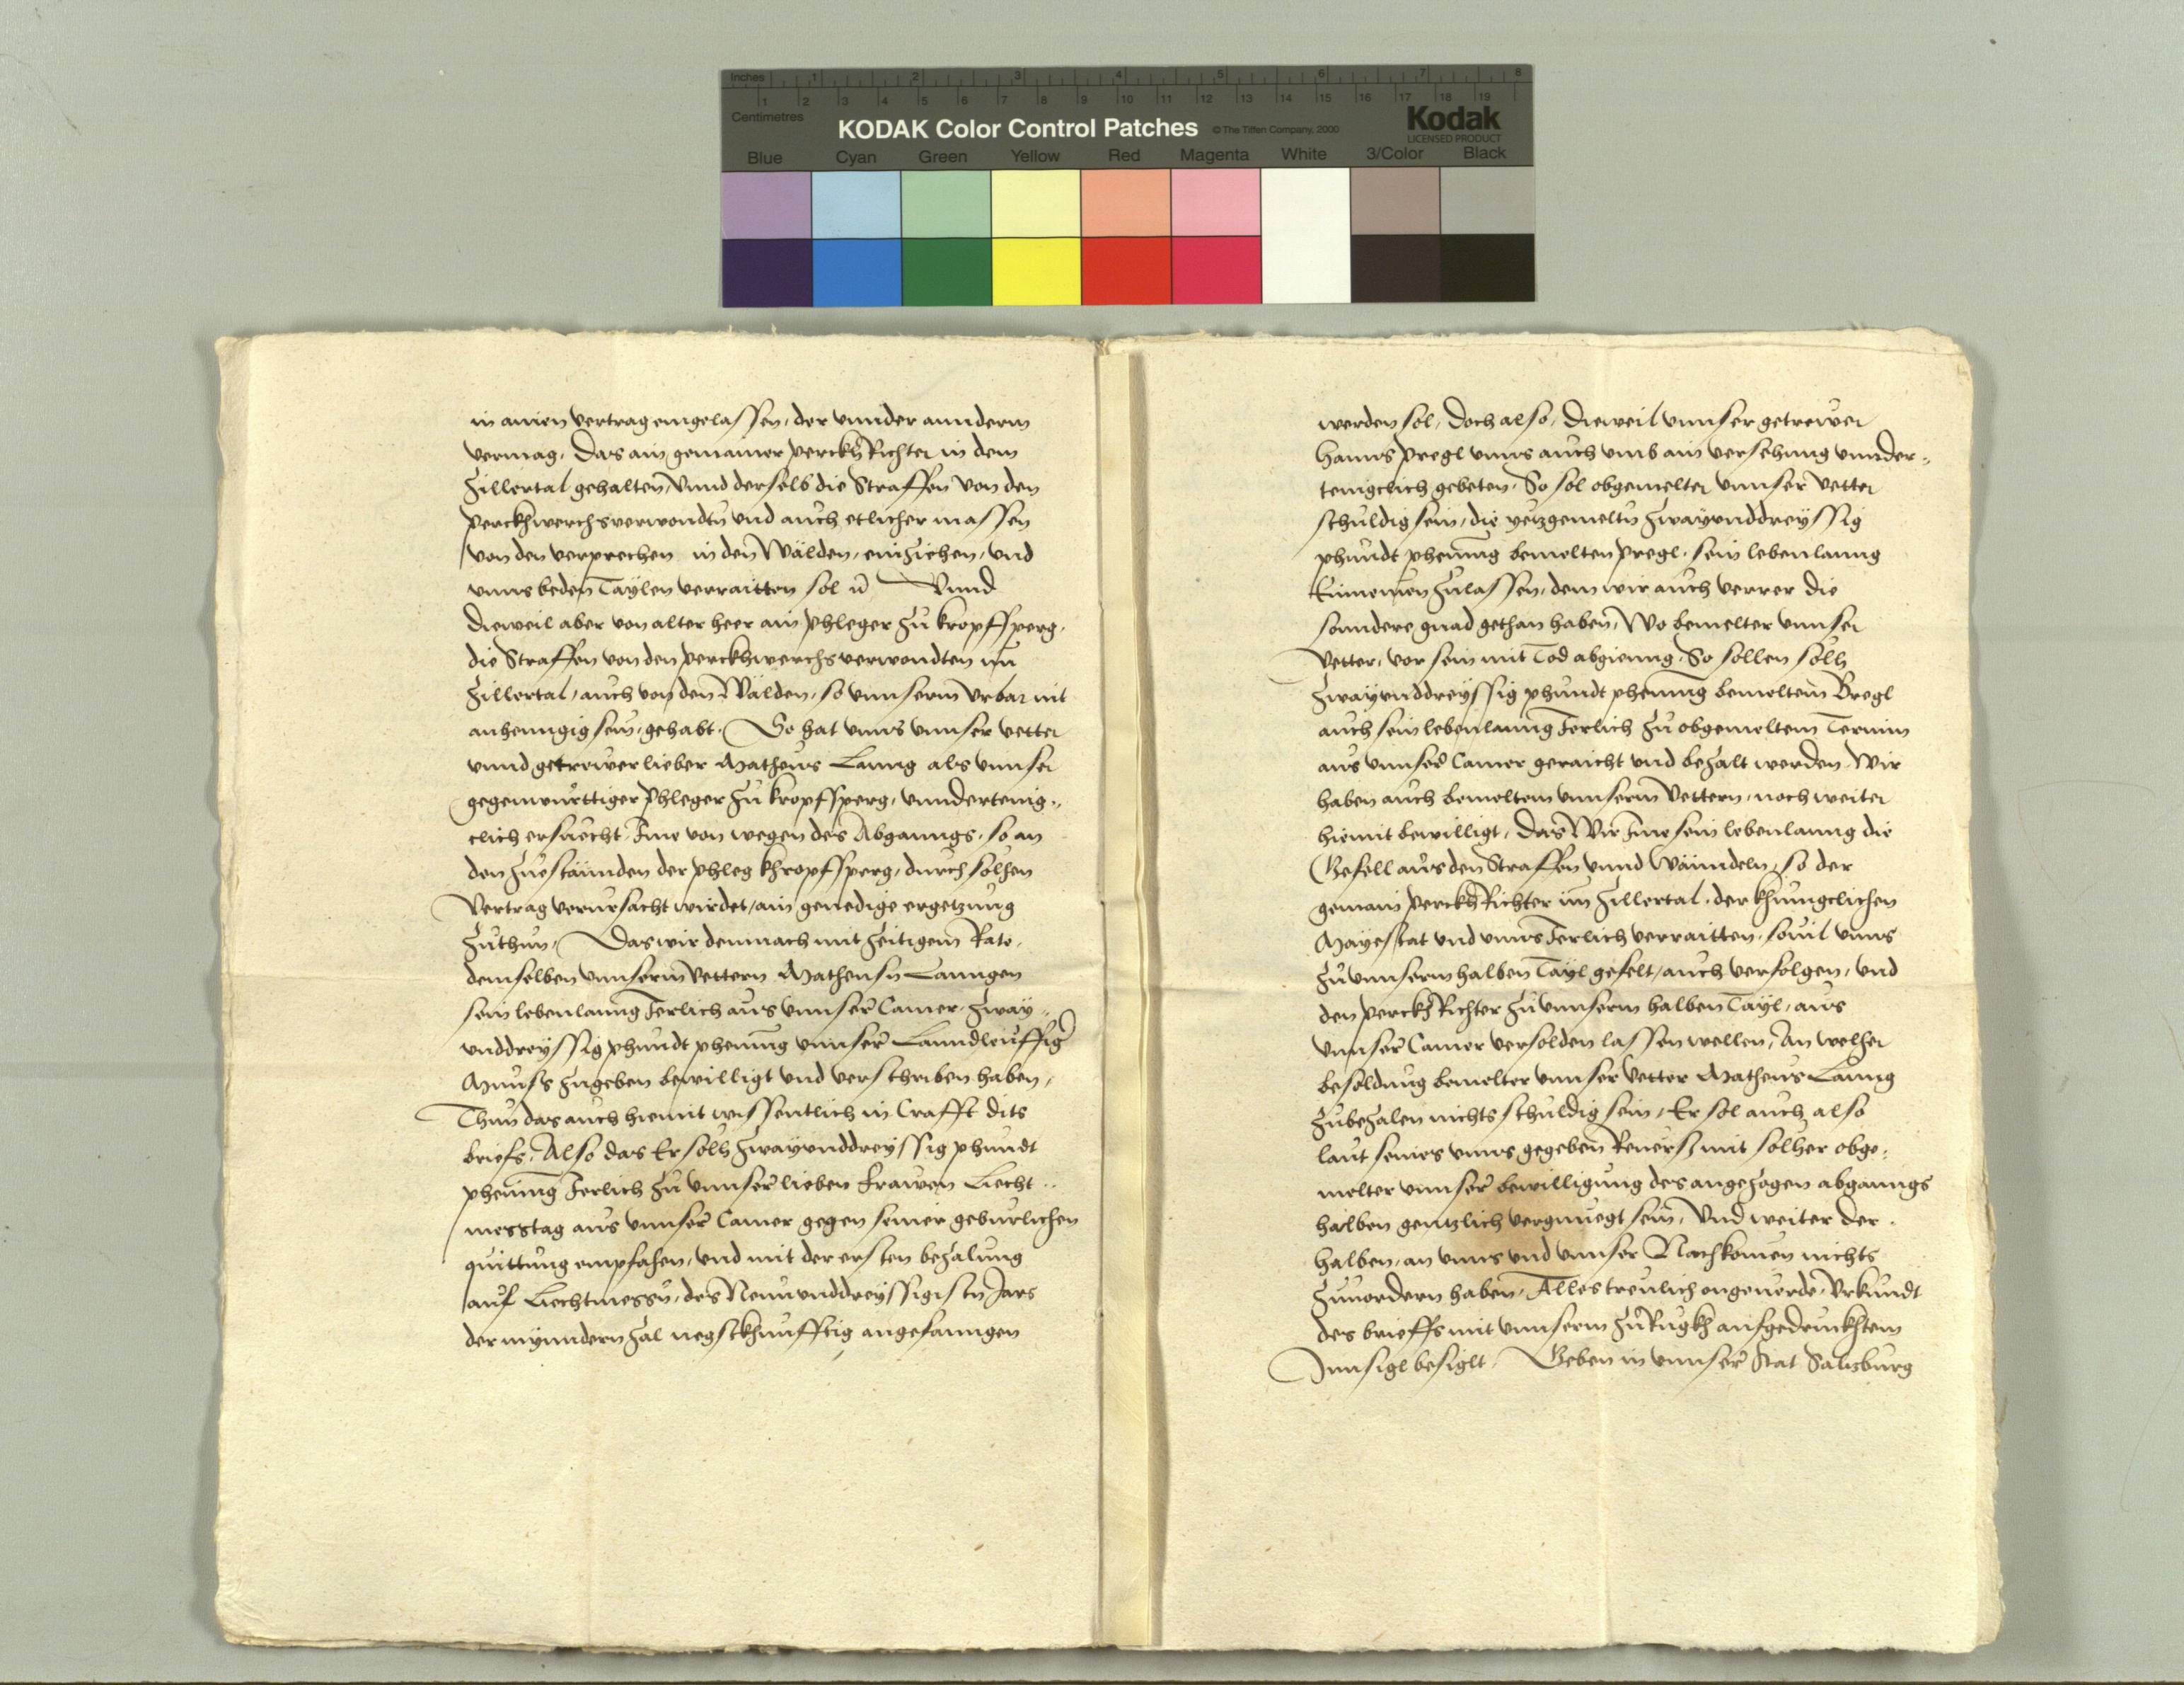 Inches 1 2 3 4 5 6 7 8
1 2 3 4 5 6 7 8 9 10 11 12 13 14 15 16 17 18 19
Centimetres
KODAK Color Control Patches © The Tiffen Company, 2000 Kodak
LICENSED PRODUCT
Blue Cyan Green Yellow Red Magenta White 3/Color Black
in ainen vertrag eingelassen, der unnder annderm
vermag, Das ain gemainer perckhRichter in dem
Zillertal gehalten, Unnd derselb die Straffen von den
perckhwerchsverwondtn und auch etlicher massen
von den verprechen in den Wälden, einziehen, und
unns beden Taylen verraitten sol Unnd
dieweil aber von alter heer ain phleger zu kropfsperg,
die Straffen von den perckhwerchsverwondten im
Zillertal, auch von den Wälden, so unnserm Urbar nit
anhenngig sein, gehabt. So hat unns unnser vetter
unnd getrewer lieber Matheus Lanng als unnser
gegenwurttiger phleger zu kropfsperg, unndertenig-
clich ersuecht, Ime von wegen des Abganngs, so an
den zuestännden der phleg khropfsperg, durch solhen
Vertrag verursacht wirdet, ain genedige ergetzung
zuthun, Das wir demnach mit zeitigem Rate,
demselben unnserm Vettern Matheusn Lanngen
sein lebenlanng Jerlich aus unnser Camer, zway-
unddreyssig phundt phening unnser Lanndleuffiger
Munss zugeben bewilligt und verschriben haben,
Thun das auch hiemit wissentlich in Crafft dits
briefs, Also das Er solh zwayunddreyssig phundt
phening Jerlich zu unnser lieben Frawen Liecht-
messtag aus unnser Camer gegen seiner geburlichen
quittung emphahen, und mit der ersten bezalung
auf Liechtmessn, des Newnunddreyssigistn Jars
der mynndern zal negstkhunfftig angefanngen
werden sol, Doch also, dieweil unnser getrewer
Hanns pregl unns auch umb ain versehung unnder-
tenigclich gebeten, So sol obgemelter unnser vetter
schuldig sein, die yetzgemeltn zwayunddreyssig
phundt phening bemelten pregl, sein lebenlanng
Einnemen zulassen, dem wir auch verrer die
sonndere gnad gethan haben, Wo bemelter unnser
Vetter, vor sein mit Tod abgienng, So sollen solh
zwayunddreyssig phundt phening bemeltem Bregl
auch sein lebenlanng Jerlich zu obgemeltem Termin
aus unnser Camer geraicht und bezalt werden, Wir
haben auch bemeltem unnserm Vettern, noch weiter
hiemit bewilligt, Das Wir Ime sein lebenlanng die
Gefell aus den Straffen unnd Wänndeln, so der
gemain perckhRichter im Zillertal, der khunigclichen
Mayestat und unns Jerlich verraitten, sovil unns
zu unnserm halben Tayl gefelt, auch verfolgen, und
den perckhRichter zu unnserm halben Tayl, aus
unnser Camer versolden lassen wellen, An welher
besoldung bemelter unnser vetter Matheus Lanng
zubezalen nichts schuldig sein, Er sol auch also
laut seines unns gegeben Revers mit solher obge-
melter unnser bewilligung des angezogen abganngs
halben genntzlich vergnuegt sein, Und weiter der-
halben, an unns und unnser Nachkomen nichts
zuvordern haben, Alles treulich ongeverde, Urkundt
des brieffs mit unnserm zuRugkh aufgedruckhtem
Innsigl besiglt, Geben in unnser Stat Saltzburg